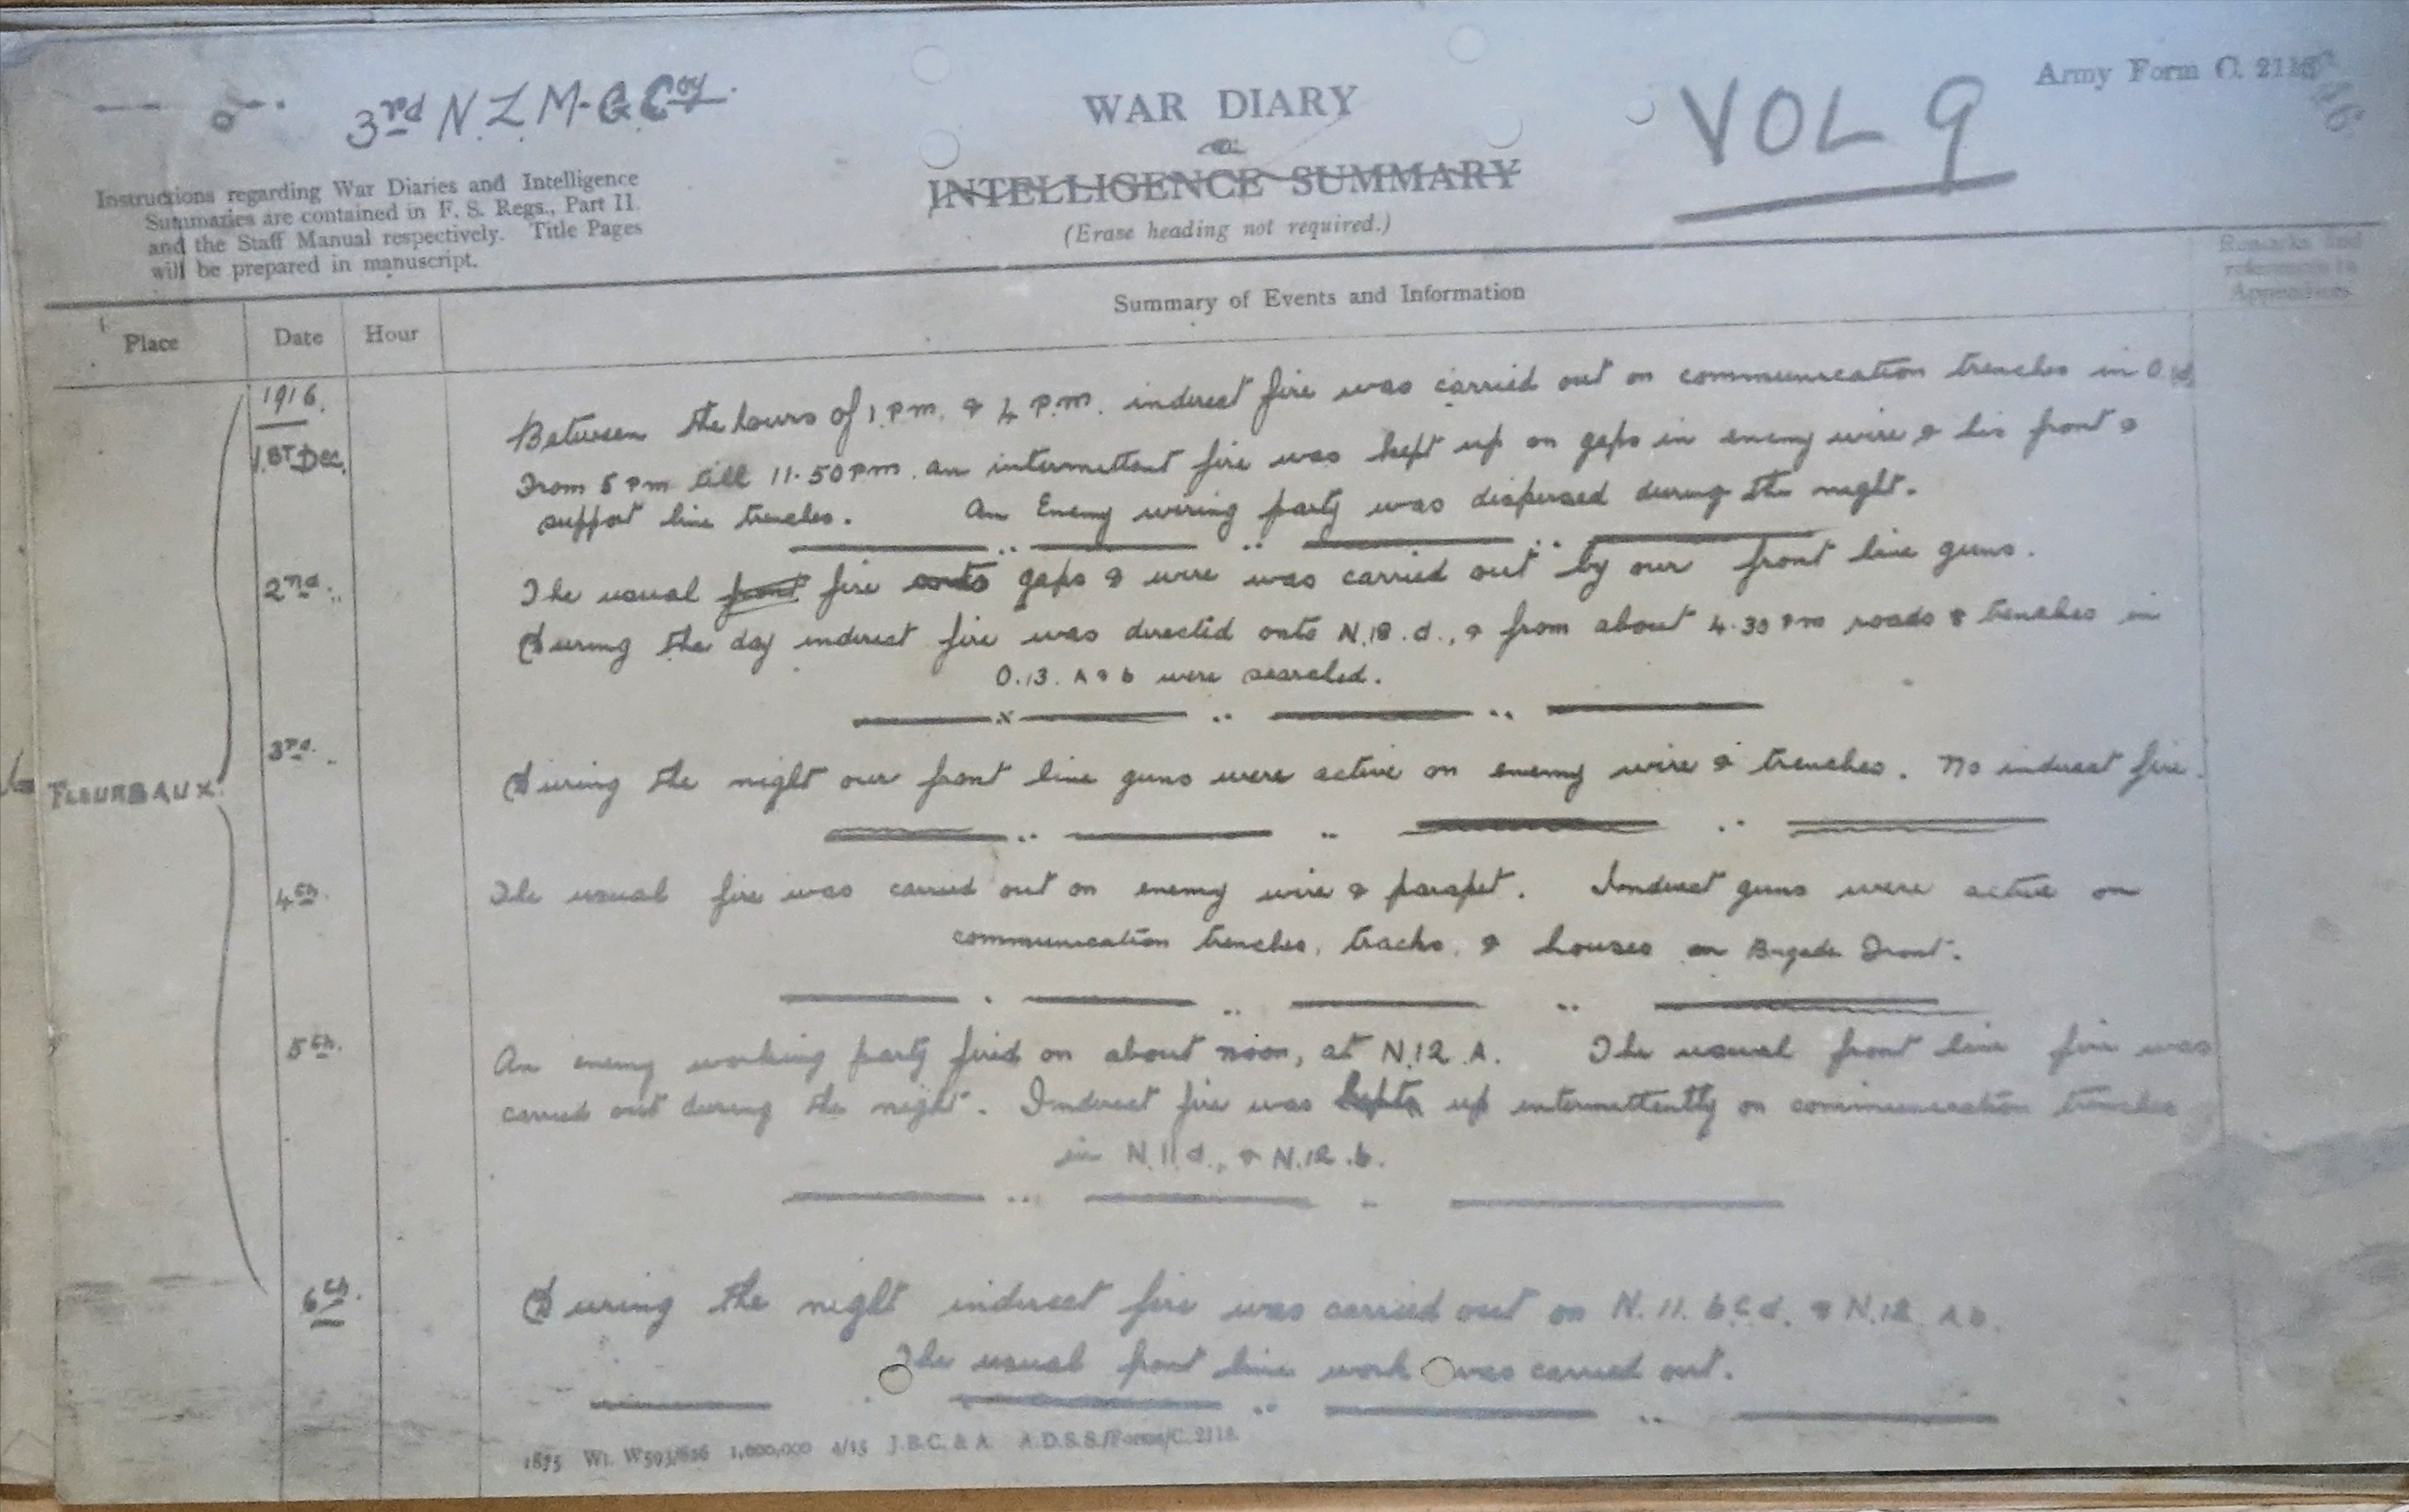 3rd N.Z. M-G. Coy.
WAR DIARY
or
INTELLIGENCE SUMMARY
(Erase heading not required.)
VOL 9
Army Form C. 2118
Instructions regarding War Diaries and Intelligence
Summaries are contained in F. S. Regs., Part II.
and the Staff Manual respectively. Title Pages
will be prepared in manuscript.
Place
Date
Hour
Summary of Events and Information
Remarks and
references to
Appendices
1916.
1.ST Dec.
Between the hours of 1.P.m. & 4 P.m. indirect fire was carried out on communication trenches in
From 5 Pm till 11.50 Pm. an intermittent fire was kept up on gaps in enemy wire & his front &
support line trenches. An Enemy wiring party was dispersed during the night.
2nd.
The usual front fire onto gaps & wire was carried out by our front line guns.
During the day indirect fire was directed onto N.18.d., & from about 4.30 Pm roads & trenches in
O.13. A & b were searched.
3rd.
FLEURBAUX.
During the night our front line guns were active on enemy wire & trenches. No indirect fire.
4th.
The usual fire was carried out on enemy wire & parapet. Indirect guns were active on
communication trenches, tracks, & houses on Brigade Front.
5th.
An enemy working party fired on about noon, at N.12.A. The usual front line fire was
carried out during the night. Indirect fire was kept up intermittently on communication trenches
in N.11 d., & N.12.b.
6th.
During the night indirect fire was carried out on N.11. b.c.d. & N.12. A b.
The usual front line work was carried out.
1875 Wt. W593/826 1,000,000 4/15 J.B.C. & A. A.D.S.S./Forms/C. 2118.